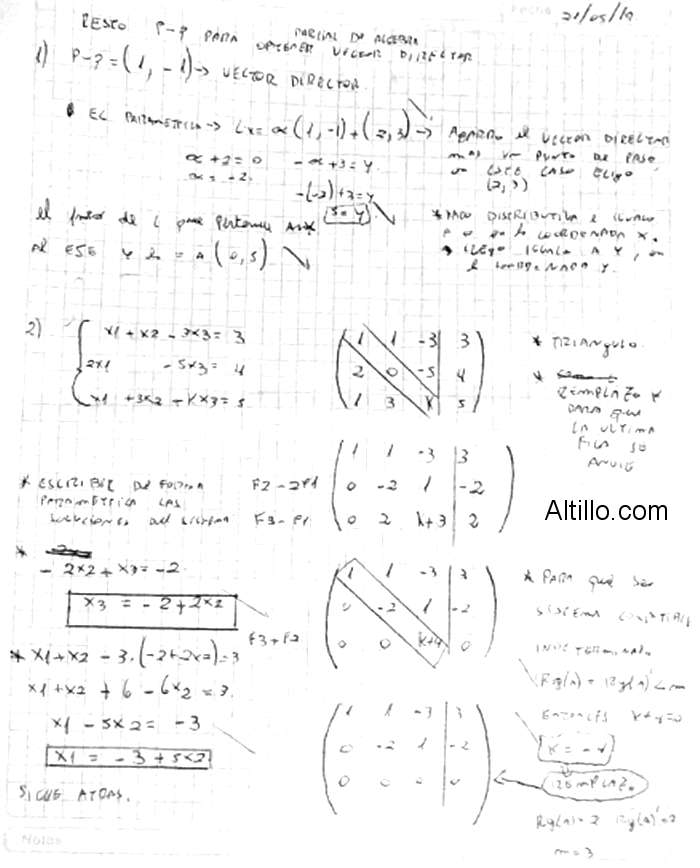 21/05/19
PARCIAL DE ALGEBRA
RESTO P-Q PARA OBTENER VECTOR DIRECTOR
1) P-Q = (1, -1) → VECTOR DIRECTOR
EC PARAMETRICA → Lx = α(1,-1) + (2,3) → AGARRO el VECTOR DIRECTOR
mas un PUNTO DE PASO
en ESTE CASO ELIJO
(2,3)
α + 2 = 0 -α + 3 = Y
α = -2 -(-2) + 3 = Y
5 = Y
el punto de L que Pertenece
Al EJE Y es = A (0,5)
* HAGO DISTRIBUTIVA e IGUALO
a 0 en la COORDENADA X.
LUEGO IGUALO A Y, en
la COORDENADA Y.
2) x1 + x2 - 3x3 = 3
2x1 - 5x3 = 4
x1 + 3x2 + Kx3 = 5
1 1 -3 3
2 0 -5 4
1 3 K 5
* TRIANGULO.
* REMPLAZO K
PARA QUE
LA ULTIMA
FILA SE
ANULE
* ESCRIBIR DE FORMA
PARAMETRICA LAS
SOLUCIONES DEL SISTEMA
F2-2F1
F3-F1
1 1 -3 3
0 -2 1 -2
0 2 K+3 2
Altillo.com
* - 2x2 + x3 = -2
x3 = -2 + 2x2
* x1 + x2 - 3.(-2+2x2) = 3
x1 + x2 + 6 - 6x2 = 3
x1 - 5x2 = -3
x1 = -3 + 5x2
SIGUE ATRAS.
F3+F2
1 1 -3 3
0 -2 1 -2
0 0 K+4 0
* PARA QUE SEA
SISTEMA COMPATIBLE
INDETERMINADO
Rg(A) = Rg(A)' < m
ENTONCES K+4=0
K = -4
REMPLAZO
1 1 -3 3
0 -2 1 -2
0 0 0 0
Rg(A) = 2 Rg(A)' = 2
m = 3
Notas